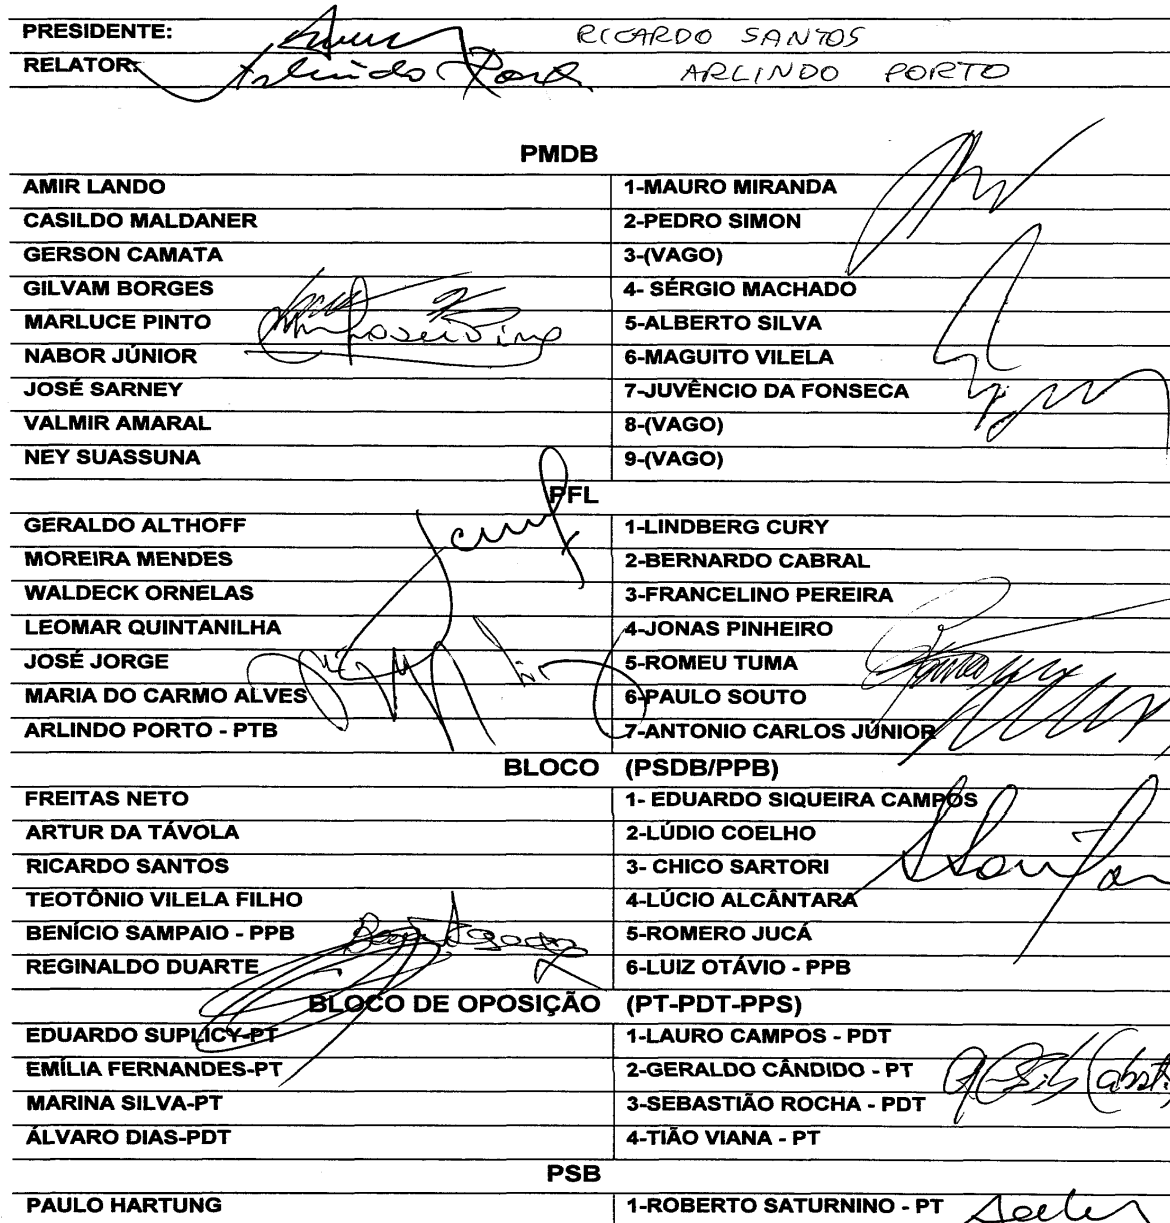 PRESIDENTE: RICARDO SANTOS
RELATOR: Arlindo Porto ARLINDO PORTO
PMDB
AMIR LANDO 1-MAURO MIRANDA
CASILDO MALDANER 2-PEDRO SIMON
GERSON CAMATA 3-(VAGO)
GILVAM BORGES 4- SÉRGIO MACHADO
MARLUCE PINTO 5-ALBERTO SILVA
NABOR JÚNIOR 6-MAGUITO VILELA
JOSÉ SARNEY 7-JUVÊNCIO DA FONSECA
VALMIR AMARAL 8-(VAGO)
NEY SUASSUNA 9-(VAGO)
PFL
GERALDO ALTHOFF 1-LINDBERG CURY
MOREIRA MENDES 2-BERNARDO CABRAL
WALDECK ORNELAS 3-FRANCELINO PEREIRA
LEOMAR QUINTANILHA 4-JONAS PINHEIRO
JOSÉ JORGE 5-ROMEU TUMA
MARIA DO CARMO ALVES 6-PAULO SOUTO
ARLINDO PORTO - PTB 7-ANTONIO CARLOS JÚNIOR
BLOCO (PSDB/PPB)
FREITAS NETO 1- EDUARDO SIQUEIRA CAMPOS
ARTUR DA TÁVOLA 2-LÚDIO COELHO
RICARDO SANTOS 3- CHICO SARTORI
TEOTÔNIO VILELA FILHO 4-LÚCIO ALCÂNTARA
BENÍCIO SAMPAIO - PPB 5-ROMERO JUCÁ
REGINALDO DUARTE 6-LUIZ OTÁVIO - PPB
BLOCO DE OPOSIÇÃO (PT-PDT-PPS)
EDUARDO SUPLICY-PT 1-LAURO CAMPOS - PDT
EMÍLIA FERNANDES-PT 2-GERALDO CÂNDIDO - PT
MARINA SILVA-PT 3-SEBASTIÃO ROCHA - PDT
ÁLVARO DIAS-PDT 4-TIÃO VIANA - PT
PSB
PAULO HARTUNG 1-ROBERTO SATURNINO - PT